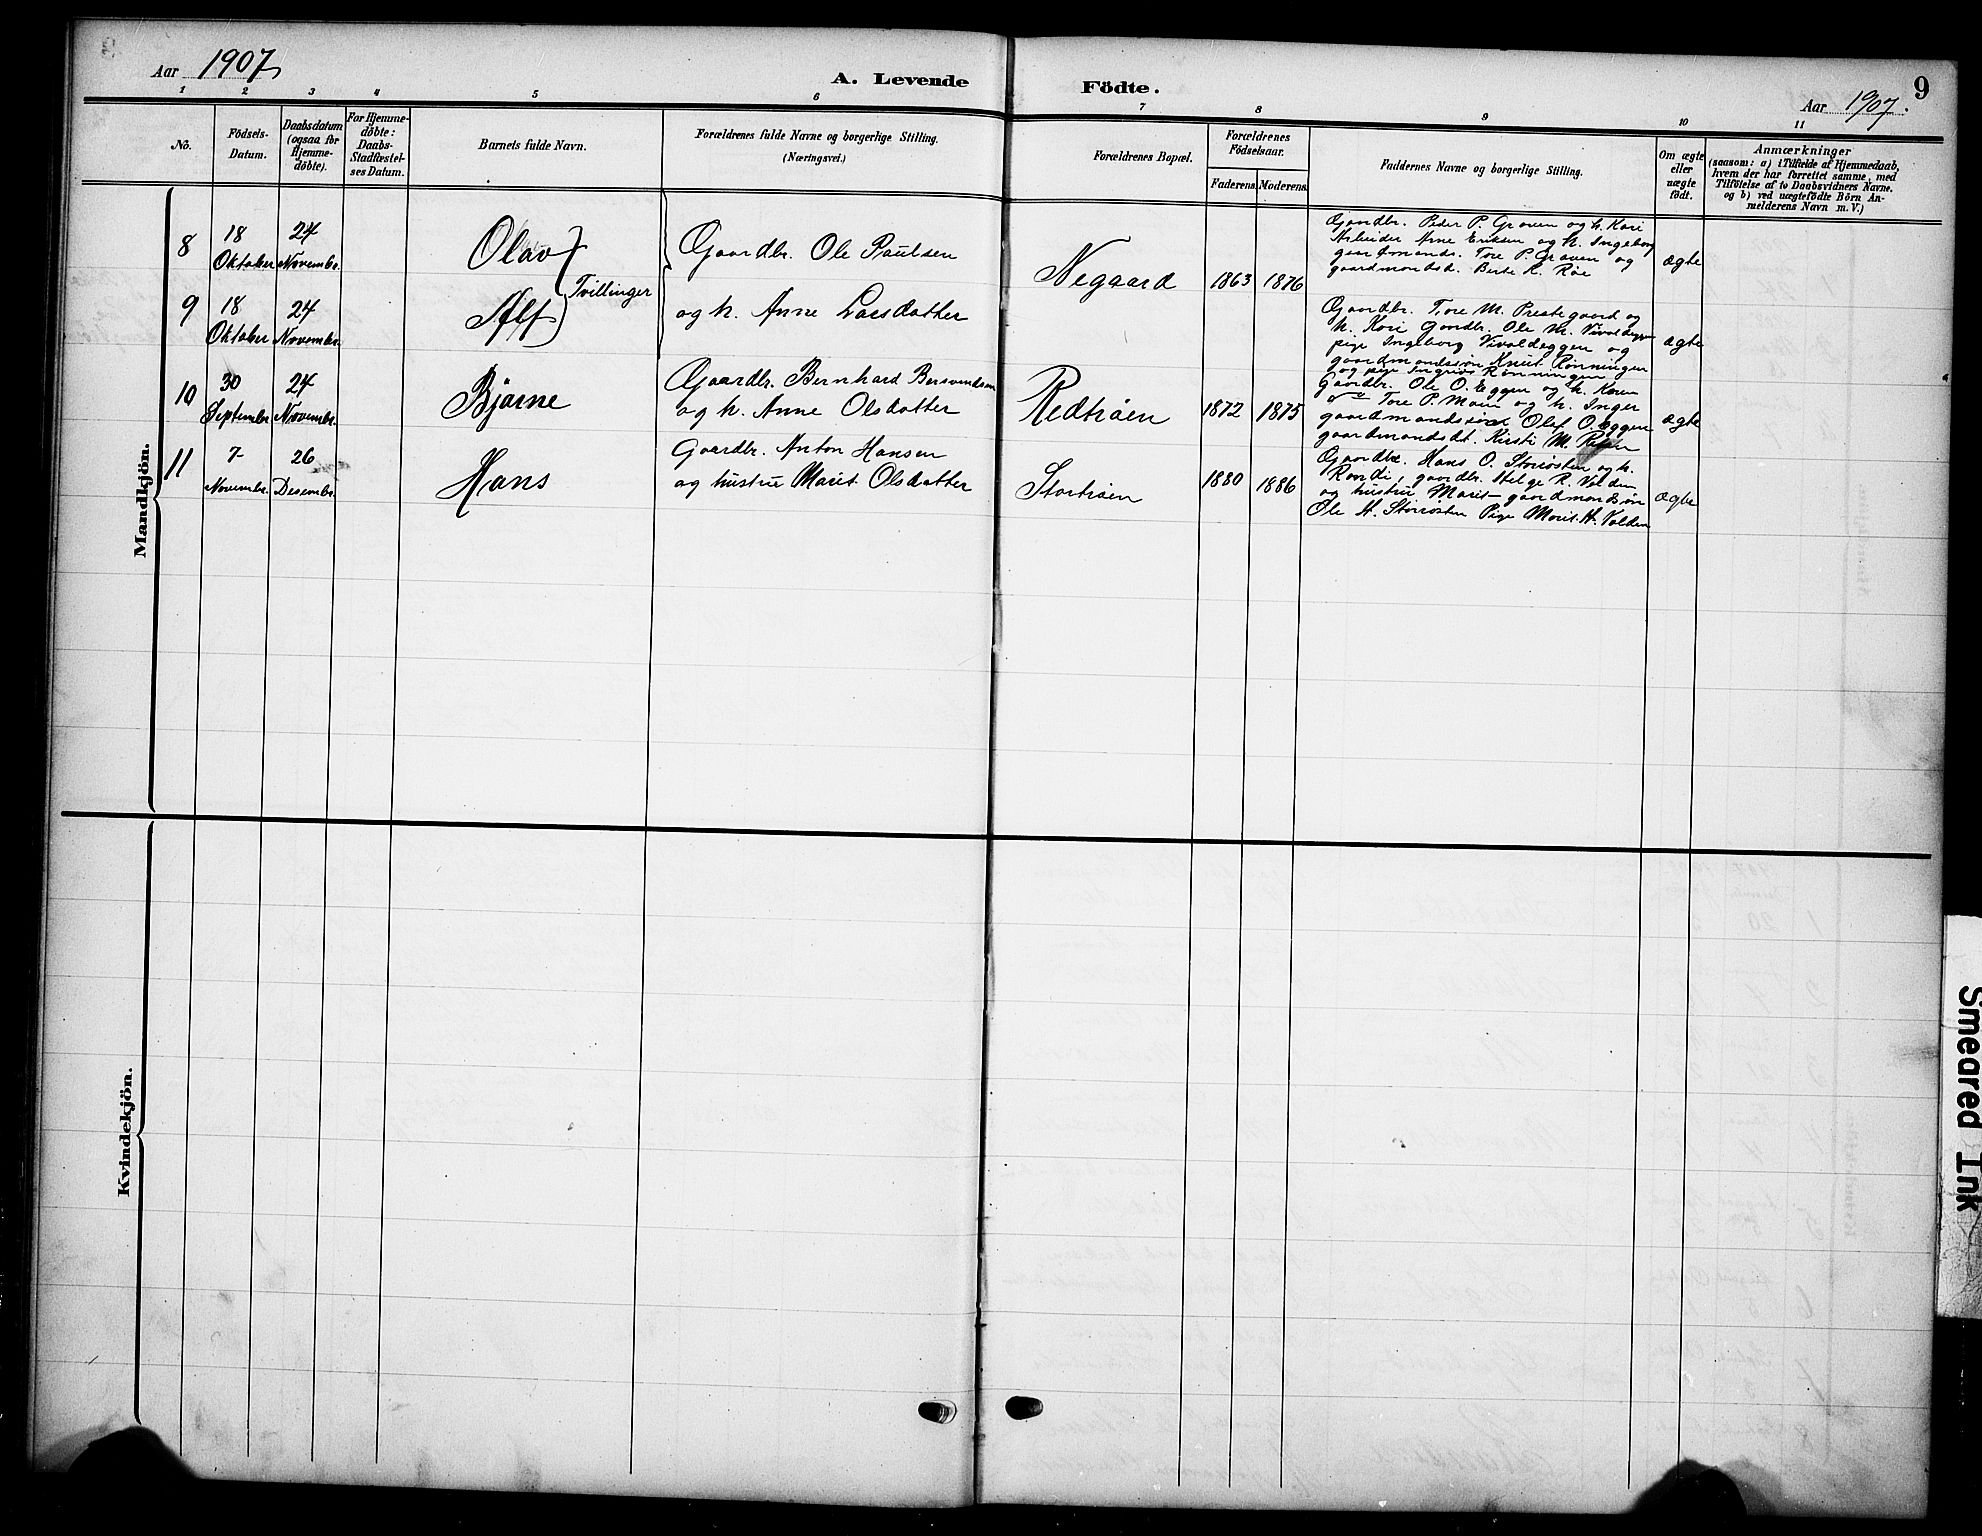 Aar 1907
A. Levende Födte.
9
Aar 1907.
1 2 3 4 5 6 7 8 9 10 11
No.
Födsels-Datum.
Daabsdatum (ogsaa for Hjemme-döbte).
For Hjemme-döbte: Daabs-Stadfæstel-ses Datum.
Barnets fulde Navn.
Forældrenes fulde Navne og borgerlige Stilling.
(Næringsvei.)
Forældrenes Bopæl.
Forældrenes Födselsaar.
Faderens. Moderens.
Faddernes Navne og borgerlige Stilling.
Om ægte eller uægte födt.
Anmærkninger
(saasom: a) i Tilfælde af Hjemmedaab,
hvem der har forrettet samme, med
Tilföielse af to Daabsvidners Navne.
og b) ved uægtefödte Börn An-
melderens Navn m. V.)
Mandkjön.
8
18 Oktober
24 Novembr.
Olav
Tvillinger
Gaardbr. Ole Paulsen
og h. Anne Larsdatter
Negaard
1863 1876
Gaardbr. Peder P. Graven og h. Kari
Arbeider Arne Eriksen og h. Ingeborg
gaardmands. Tore P. Graven og
gaardmandsd. Berte R. Røe
ægte
9
18 Oktober
24 Novembr.
Alf
Gaardbr. Tore M. Prestegaard og
h. Kari Gaardbr. Ole M. Vivaldeggen
pige Ingeborg Vivaldeggen og
gaardmandssøn Knut Rønningen
og pige Ingrid Rønningen
ægte
10
30 Septembr.
24 Novembr.
Bjarne
Gaardbr. Bernhard Bersvendsen
og h. Anne Olsdatter
Redtrøen
1872 1875
Gaardbr. Ole O. Eggen og h. Karen
Tore P. Moen og h. Inger
gaardmandssøn Olaf O. Eggen
gaardmandsdt. Kirsti M.
ægte
11
7 Novembr.
26 Desembr.
Hans
Gaardbr. Anton Hansen
og hustru Marit Olsdatter
Stortrøen
1880 1886
Gaardbr. Hans O. Storrøsten og h.
Randi, gaardbr. Helge R. Volden
og hustru Marit gaardmandsøn
Ole H. Storrøsten Pige Marit H. Volden
ægte
Kvindekjön.
Smeared Ink